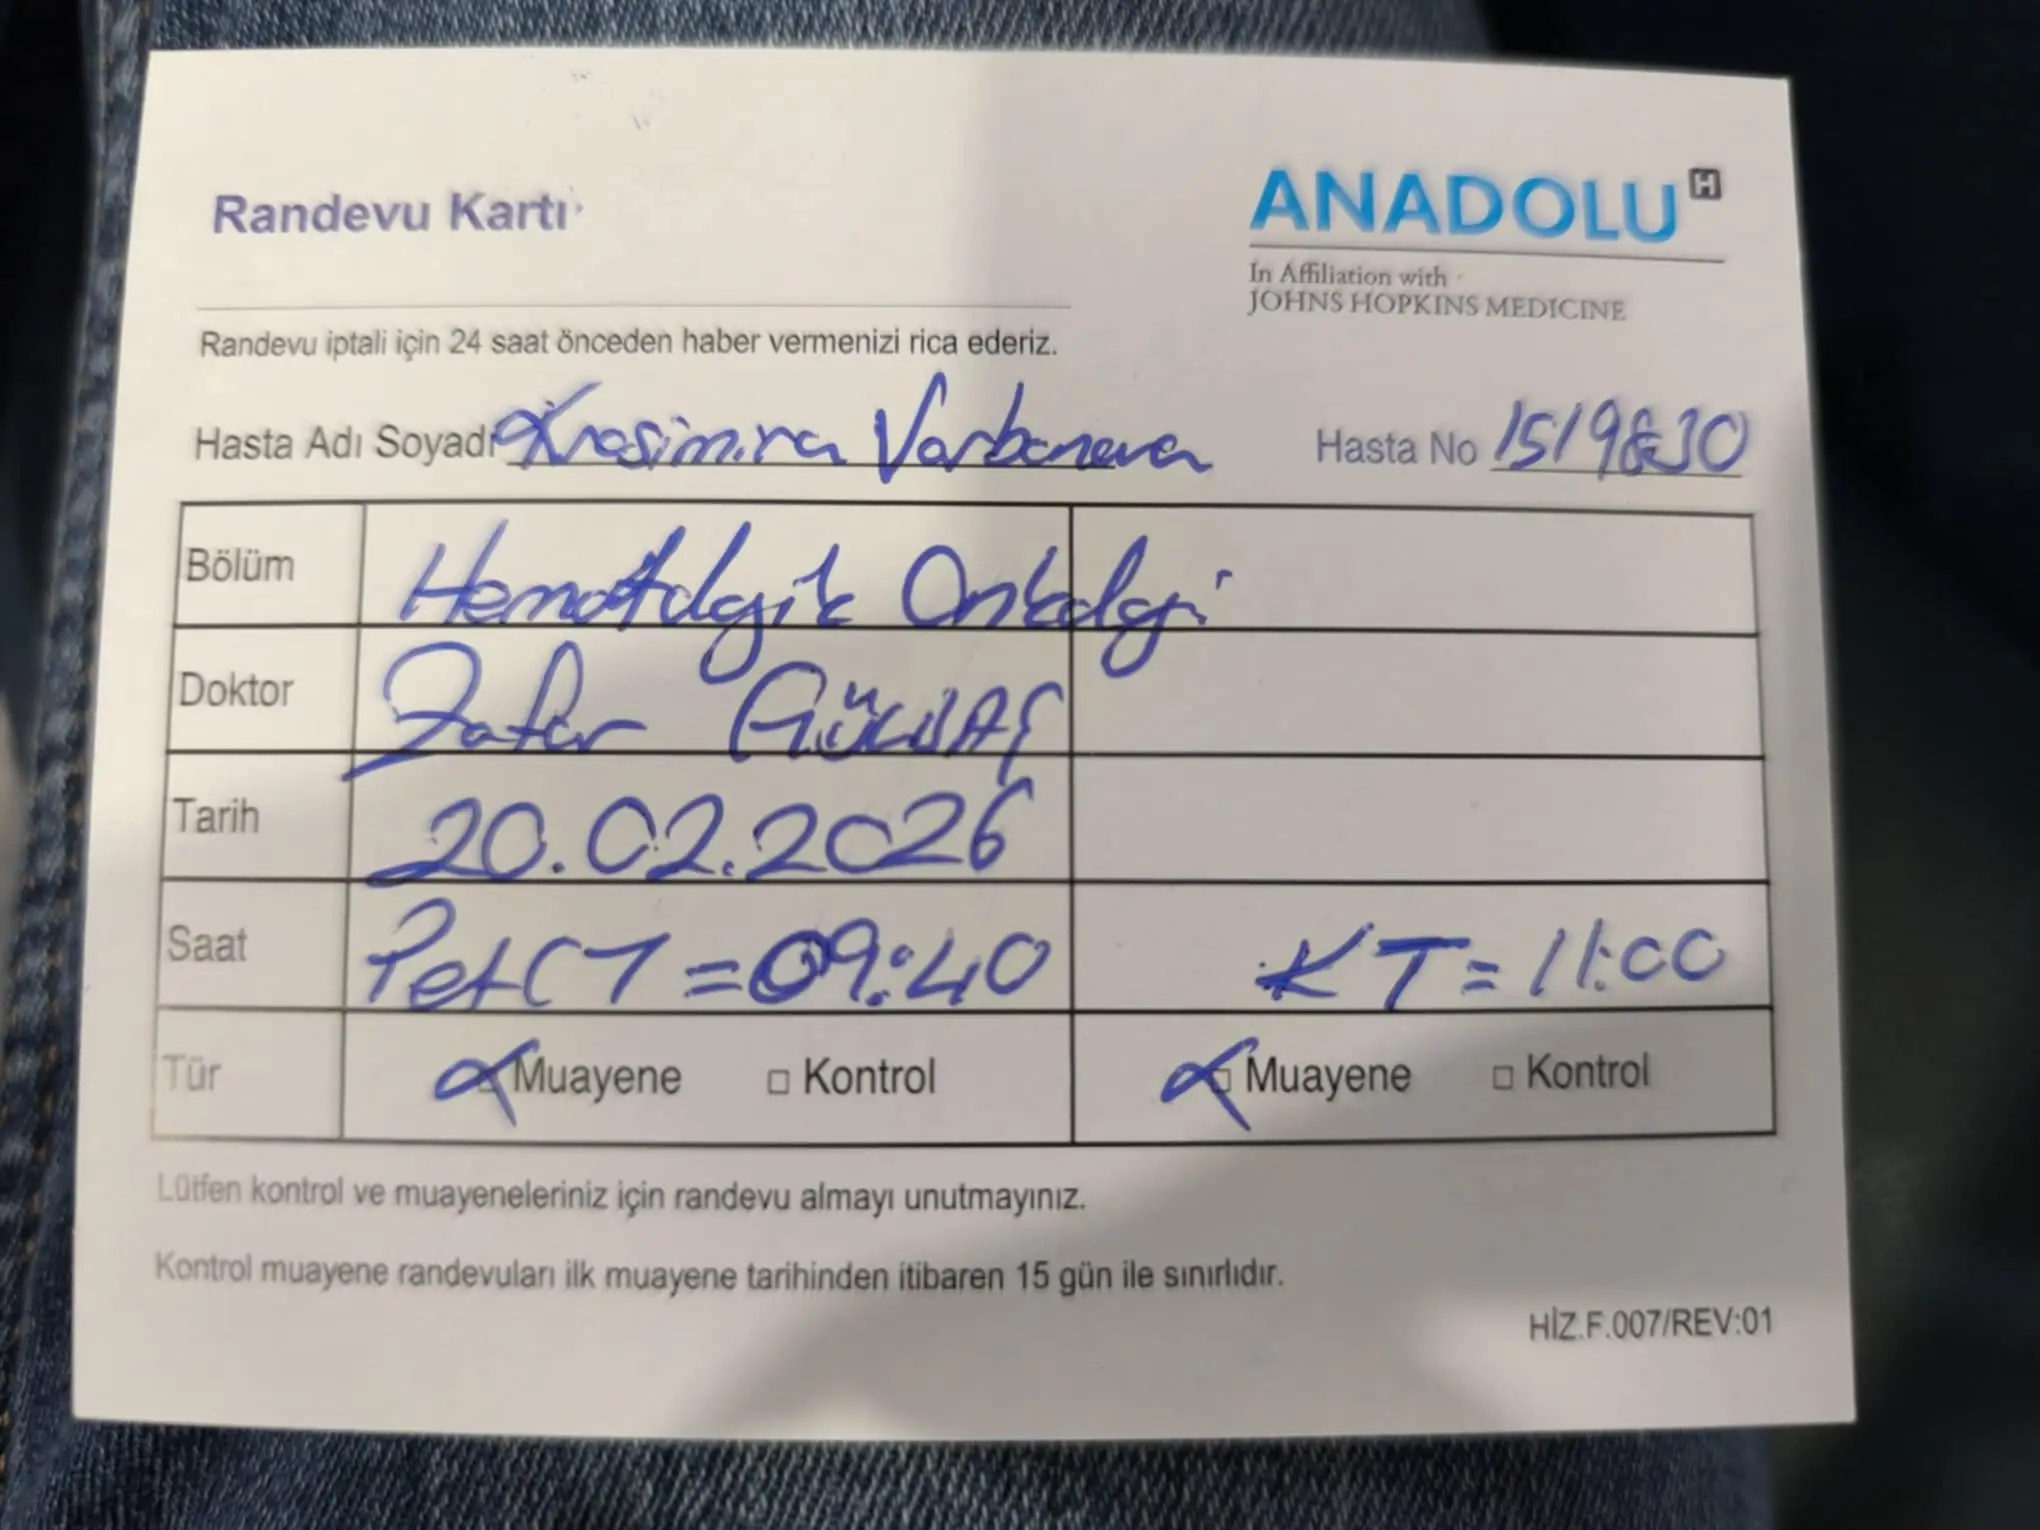 Randevu Kartı
ANADOLU H
In Affiliation with
JOHNS HOPKINS MEDICINE
Randevu iptali için 24 saat önceden haber vermenizi rica ederiz.
Hasta Adı Soyadı Krasimira Varbaneva Hasta No
Bölüm Hematolojik Onkoloji
Doktor Zafer GÜLBAŞ
Tarih 20.02.2026
Saat PetCT = 09:40 KT = 11:00
Tür Muayene □ Kontrol Muayene □ Kontrol
Lütfen kontrol ve muayeneleriniz için randevu almayı unutmayınız.
Kontrol muayene randevuları ilk muayene tarihinden itibaren 15 gün ile sınırlıdır.
HİZ.F.007/REV:01